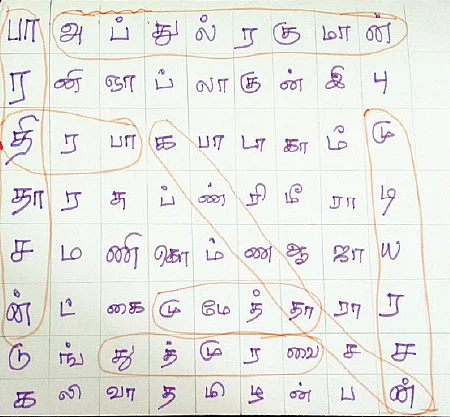 பா அ ப் து ல் ர கு மா ன்
ர னி ஞா ப் லா கு ன் இ பு
தி ர பா க பா டா கா மீ மு
தா ர சு ப் ண் ரி மீ ரா டி
ச ம ணி கொ ம் ண ஆ ஜா ய
ன் ட் கை மு மே த் தா ரா ர
டு ங் து த் மு ர வை ச ச
க லி வா த மி ழ ன் ப ன்